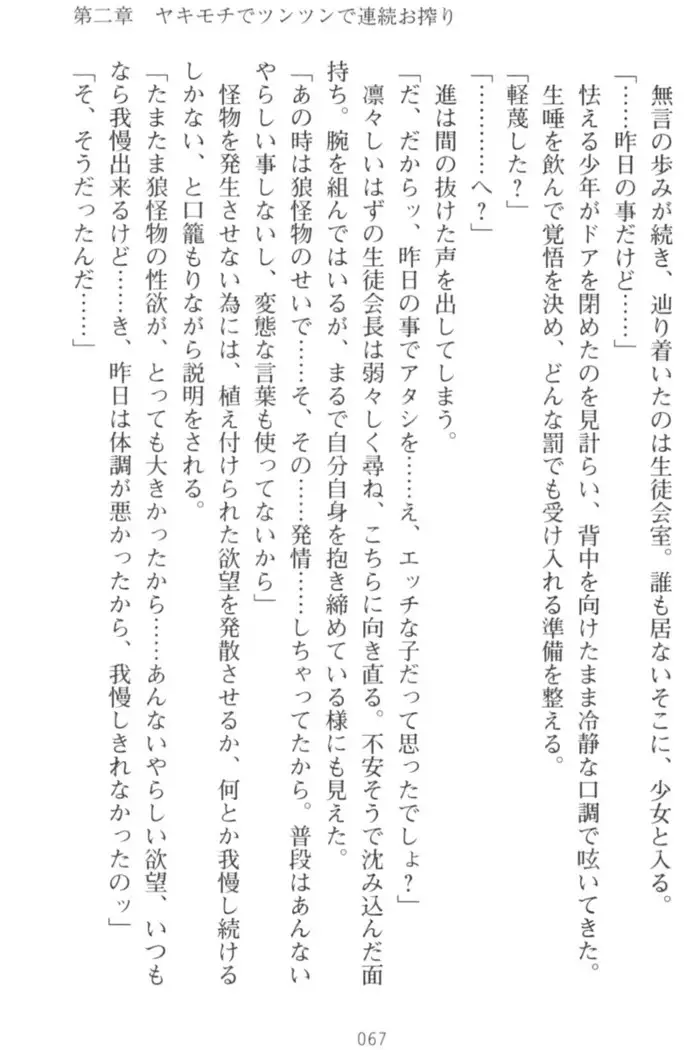 第二章　ヤキモチでツンツンで連続お搾り
無言の歩みが続き、辿り着いたのは生徒会室。誰も居ないそこに、少女と入る。
「……昨日の事だけど……」
怯える少年がドアを閉めたのを見計らい、背中を向けたまま冷静な口調で呟いてきた。
生唾を飲んで覚悟を決め、どんな罰でも受け入れる準備を整える。
「軽蔑した？」
「…………へ？」
進は間の抜けた声を出してしまう。
「だ、だからッ、昨日の事でアタシを……え、エッチな子だって思ったでしょ？」
凛々しいはずの生徒会長は弱々しく尋ね、こちらに向き直る。不安そうで沈み込んだ面
持ち。腕を組んではいるが、まるで自分自身を抱き締めている様にも見えた。
「あの時は狼怪物のせいで……そ、その……発情……しちゃってたから。普段はあんない
やらしい事しないし、変態な言葉も使ってないから」
怪物を発生させない為には、植え付けられた欲望を発散させるか、何とか我慢し続ける
しかない、と口籠もりながら説明をされる。
「たまたま狼怪物の性欲が、とっても大きかったから……あんないやらしい欲望、いつも
なら我慢出来るけど……き、昨日は体調が悪かったから、我慢しきれなかったのッ」
「そ、そうだったんだ……」
067